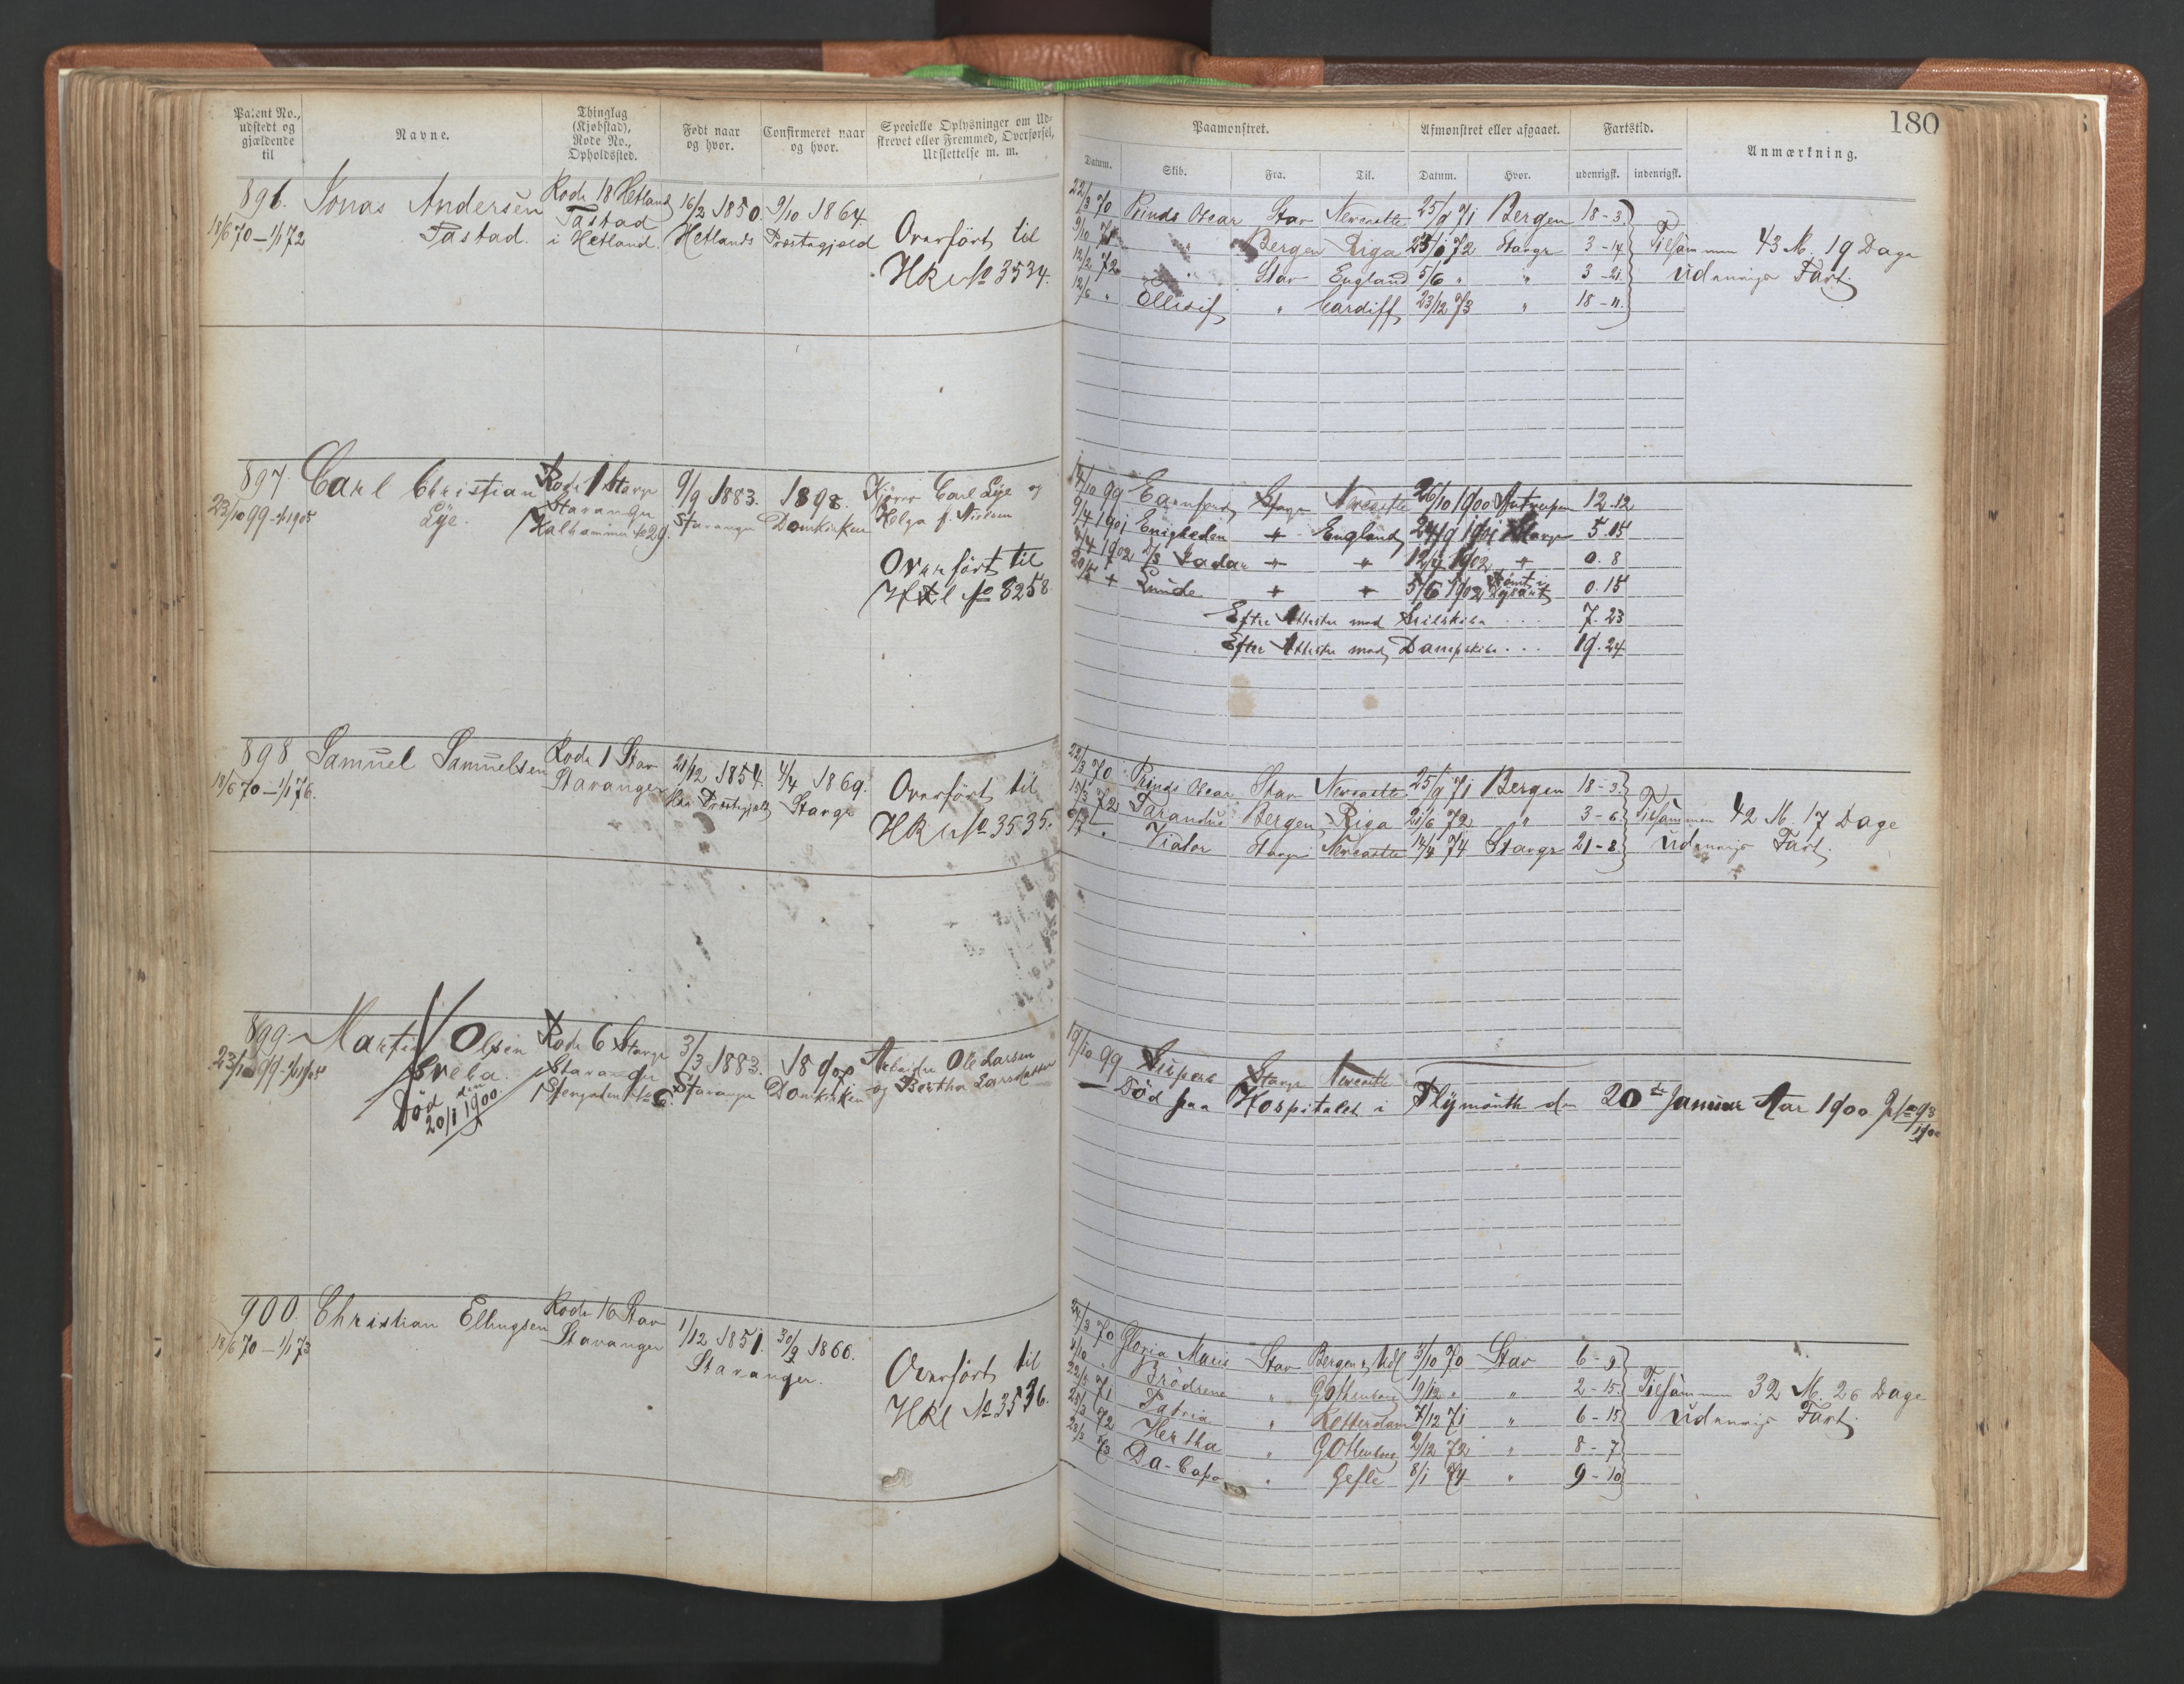 Patent No., udstedt og gjældende til
Navne.
Thinglag (Kjøbstad), Rode No., Opholdssted.
Født naar og hvor.
Confirmeret naar og hvor.
Specielle Oplysninger om Udskrevet eller Fremmed, Overførsel, Udslettelse m. m.
Paamønstret.
Afmønstret eller afgaaet.
Fartstid.
180
Datum.
Skib.
Fra.
Til.
Datum.
Hvor.
udenrigsk.
indenrigsk.
Anmærkning.
896. Jonas Andersen Rode 18 Hetland 16/2 1850. 9/10 1864.
18/6 70 – 1/1 72 Tastad. Tastad i Hetland. Hetlands Præstegjeld
Overført til
HKl No 3534.
22/3 70 Prinds Oscar Stav Newcastle 25/9 71 Bergen 18 - 3
9/10 71 " Bergen Riga 23/1 72 Stavgr 3 - 14
12/2 72 " Stav England 5/6 " " 3 - 21
12/6 " Ellisif " Cardiff 23/12 73 " 18 - 11
Tilsammen 43 M. 19 Dage
Udenrigs Fart.
897 Carl Christian Rode 1 Stavgr 9/9 1883. 1898. Kjører Carl Lye og
23/10 99 – 1/1 1905 Lye. Stavanger Stavanger Domkirken Helga f. Nielsen
Kalhammer No 29.
Overført til
HKl No 3258
14/10 99 Stavgr Newcastle 26/10 1900 Antwerpen 12.12
9/4 1901 Enigheden + England 24/9 1901 Stavgr 5.15
1902 D/S Jadar + + 12/4 1902 + 0.8
20/5 + Lunde + + 5/6 1902 Rømt i 0.15
Efter Attester med Seilskibe . . . 7.23
Efter Attester med Dampskibe . . . 19.24
898 Samuel Samuelsen Rode 1 Stav 21/12 1854. 4/4 1869.
18/6 70 – 1/1 76. Stavanger Præstegjeld Stavgr
Overført til
HKl No 3535.
22/3 70 Prinds Oscar Stav Newcastle 25/9 71 Bergen 18 - 3
15/3 72 Tarandus Bergen Riga 21/6 72 " 3 - 6
" Viator Stavgr Newcastle 14/4 74 Stavgr 21 - 8
Tilsammen 42 M. 17 Dage
Udenrigs Fart.
899 Martin Olsen Rode 6 Stavgr 3/3 1883. Arbeider Ole Larsen
23/10 99 – 1/1 1905 Sveba. Stavanger Stavanger Domkirken og Bertha Larsdatter
Stengaden No 6.
Død den
20/1 1900
19/10 99 Stavgr Newcastle
Død paa Hospitalet i Plymouth den 20de Januar Aar 1900
900. Christian Ellingsen Rode 16 Stav 1/12 1851. 30/9 1866.
18/6 70 – 1/1 73 Stavanger Stavanger.
Overført til
HKl No 3536.
24/3 70 Gloria Maris Stav Bergen & Udl 3/10 70 Stav 6 - 9
4/10 " Brødrene " Gothenborg 19/12 " " 2 - 15
22/5 71 Patria " Rotterdam 7/12 71 " 6 - 15
25/3 72 Hertha " Gothenborg 2/12 72 " 8 - 7
28/3 73 Da-Capo " Gefle 8/1 74 " 9 - 10
Tilsammen 32 M. 26 Dage
Udenrigs Fart.